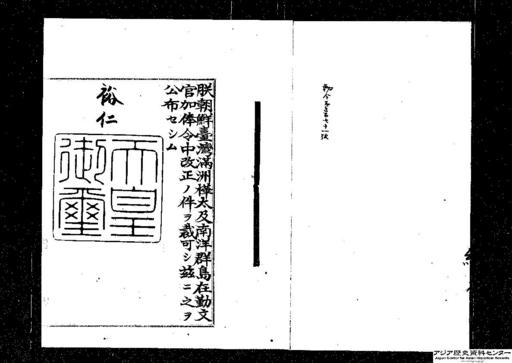 勅令第三百七十一號
朕朝鮮臺灣滿洲樺太及南洋群島在勤文
官加俸令中改正ノ件ヲ裁可シ茲ニ之ヲ
公布セシム
裕仁
天皇
御璽
アジア歴史資料センター
Japan Center for Asian Historical Records